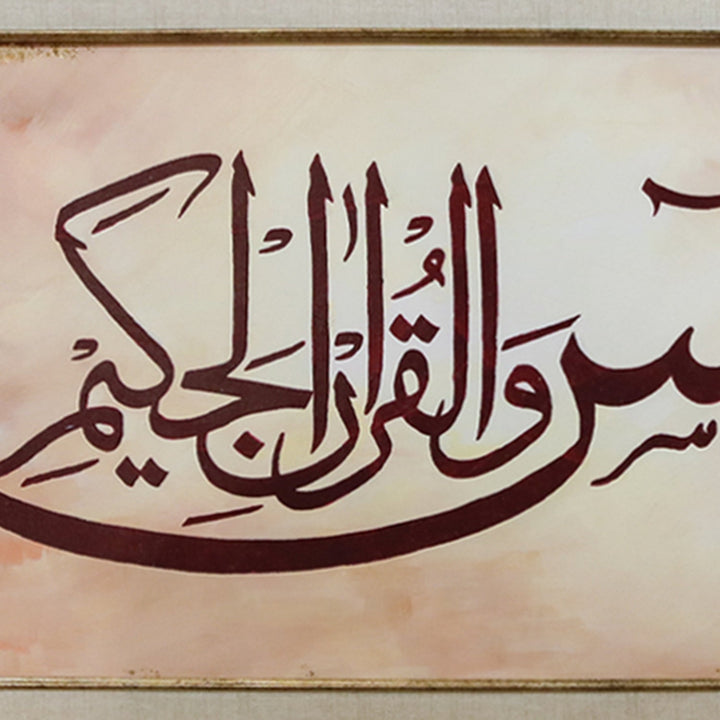 س وَالْقُرْاٰنِ الْحَكِيْمِ